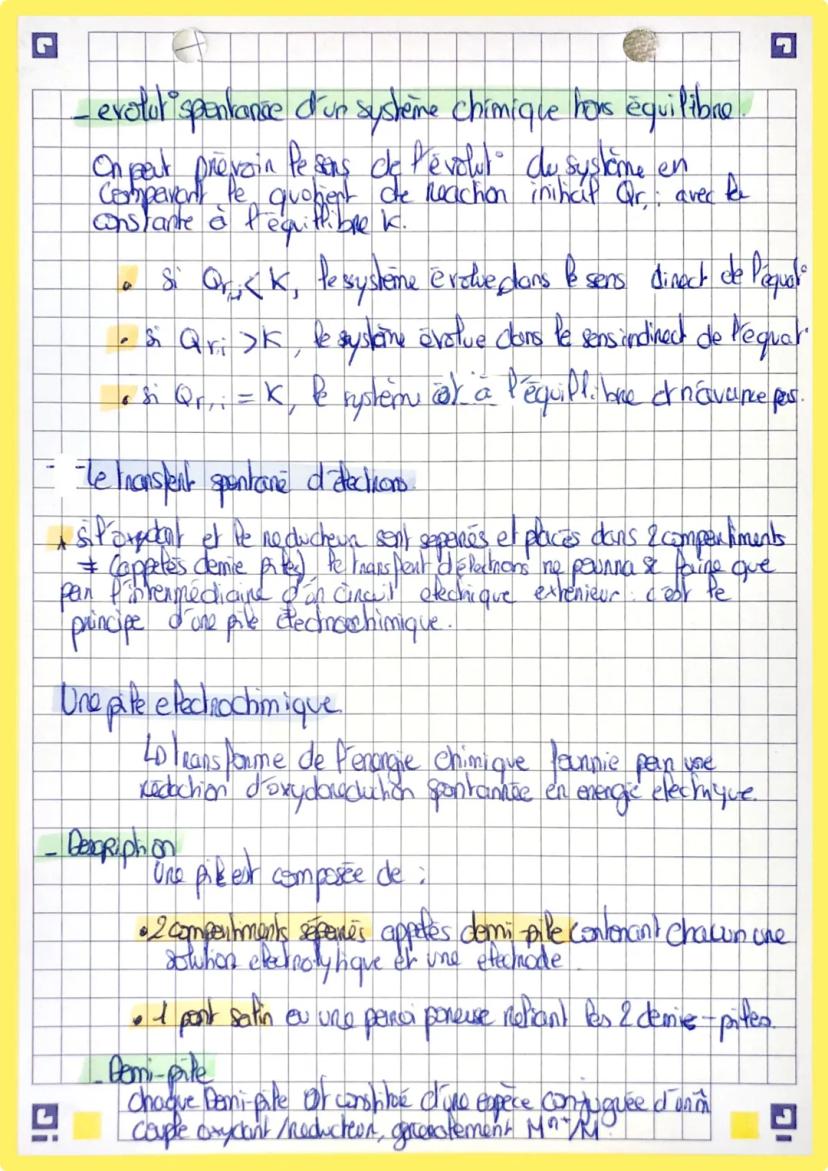 - evolut° spontanée d'un système chimique hors équilibre.
On peut prévoir le sens de l'évolut° du système en
comparant le quotient de reaction initial Qr,i avec la
constante à l'équilibre K.
• si Qr,i < K, le système évolue dans le sens direct de l'équat°
• si Qr,i > K, le système évolue dans le sens indirect de l'equat°
• si Qr,i = K, le système est à l'équilibre et n'avance pas.
- Le transfert spontané d'électrons
si l'oxydant et le reducteur sont separés et placés dans 2 compartiments
≠ (appelés demie piles) le transfert d'électrons ne pourra se faire que
par l'intermédiaire d'un circuit electrique exterieur : c'est le
principe d'une pile électrochimique.
Une pile electrochimique
↳ transforme de l'energie chimique fournie par une
réaction d'oxydoreduction spontannée en energie electrique.
- Description
Une pile est composée de :
• 2 compartiments séparés appelés demi-pile contenant chacun une
solution electrolytique et une electrode
• 1 pont salin ou une paroi poreuse reliant les 2 demie-piles.
- Demi-pile
chaque Demi-pile est constitué d'une espèce conjuguée d'un m̂
couple oxydant/reducteur, généralement Mⁿ⁺/M